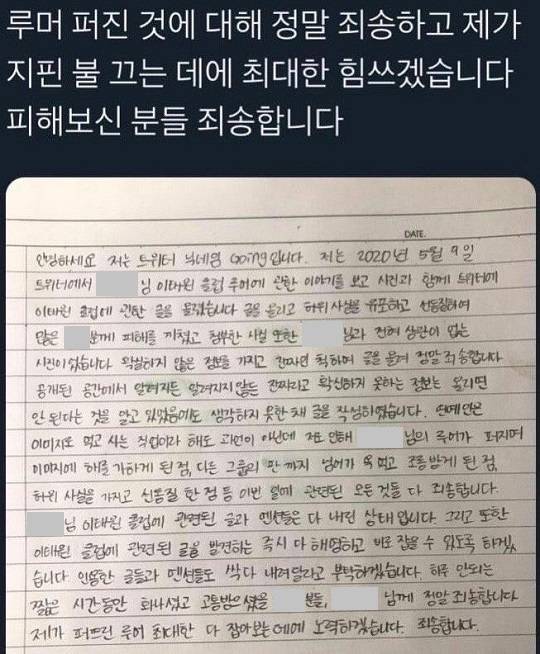 루머 퍼진 것에 대해 정말 죄송하고 제가
지핀 불 끄는 데에 최대한 힘쓰겠습니다
피해보신 분들 죄송합니다
DATE.
안녕하세요 저는 트위터 닉네임 Going입니다. 저는 2020년 5월 9일
트위터에서 님 이태원 클럽 루머에 관한 이야기를 보고 사진과 함께 트위터에
이태원 클럽에 관한 글을 올렸습니다 글을 올리고 허위 사실을 유포하고 선동질하여
많은 분께 피해를 끼쳤고 첨부한 사진 또한 님과 전혀 상관이 없는
사진이었습니다. 확실하지 않은 정보를 가지고 진짜인 척하며 글을 올려 정말 죄송합니다
공개된 공간에서 알려지든 알려지지 않든 진짜라고 확신하지 못하는 정보는 올리면
안 된다는 것을 알고 있었음에도 생각하지 못한 채 글을 작성하였습니다. 연예인은
이미지로 먹고 사는 직업이라 해도 과언이 아닌데 저로 인해 님의 루머가 퍼지며
이미지에 해를 가하게 된 점, 다른 그룹의 팬까지 넘어가 욕 먹고 조롱받게 된 점,
허위 사실을 가지고 선동질 한 점 등 이번 일에 관련된 모든 것들 다 죄송합니다.
님 이태원 클럽에 관련된 글과 멘션들은 다 내린 상태입니다. 그리고 또한
이태원 클럽에 관련된 글을 발견하는 즉시 다 해명하고 바로 잡을 수 있도록 하겠
습니다 인용한 글들과 멘션들도 싹 다 내려달라고 부탁하겠습니다. 하루 안되는
짧은 시간동안 화나셨고 고통받으셨을 분들, 님께 정말 죄송합니다
제가 퍼뜨린 루머 최대한 다 잡아보는데에 노력하겠습니다. 죄송합니다.